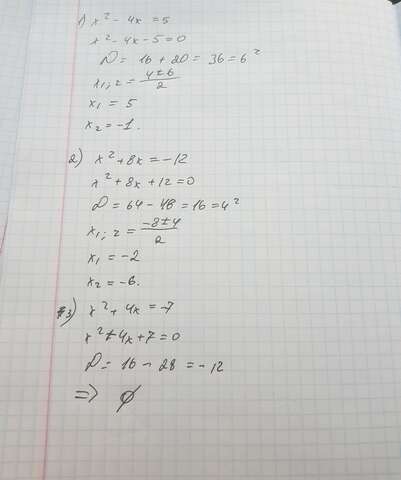 1) x² - 4x = 5
x² - 4x - 5 = 0
D = 16 + 20 = 36 = 6²
x₁;₂ = (4±6)/2
x₁ = 5
x₂ = -1.
2) x² + 8x = -12
x² + 8x + 12 = 0
D = 64 - 48 = 16 = 4²
x₁;₂ = (-8±4)/2
x₁ = -2
x₂ = -6.
3) x² + 4x = -7
x² + 4x + 7 = 0
D = 16 - 28 = -12
=> ∅